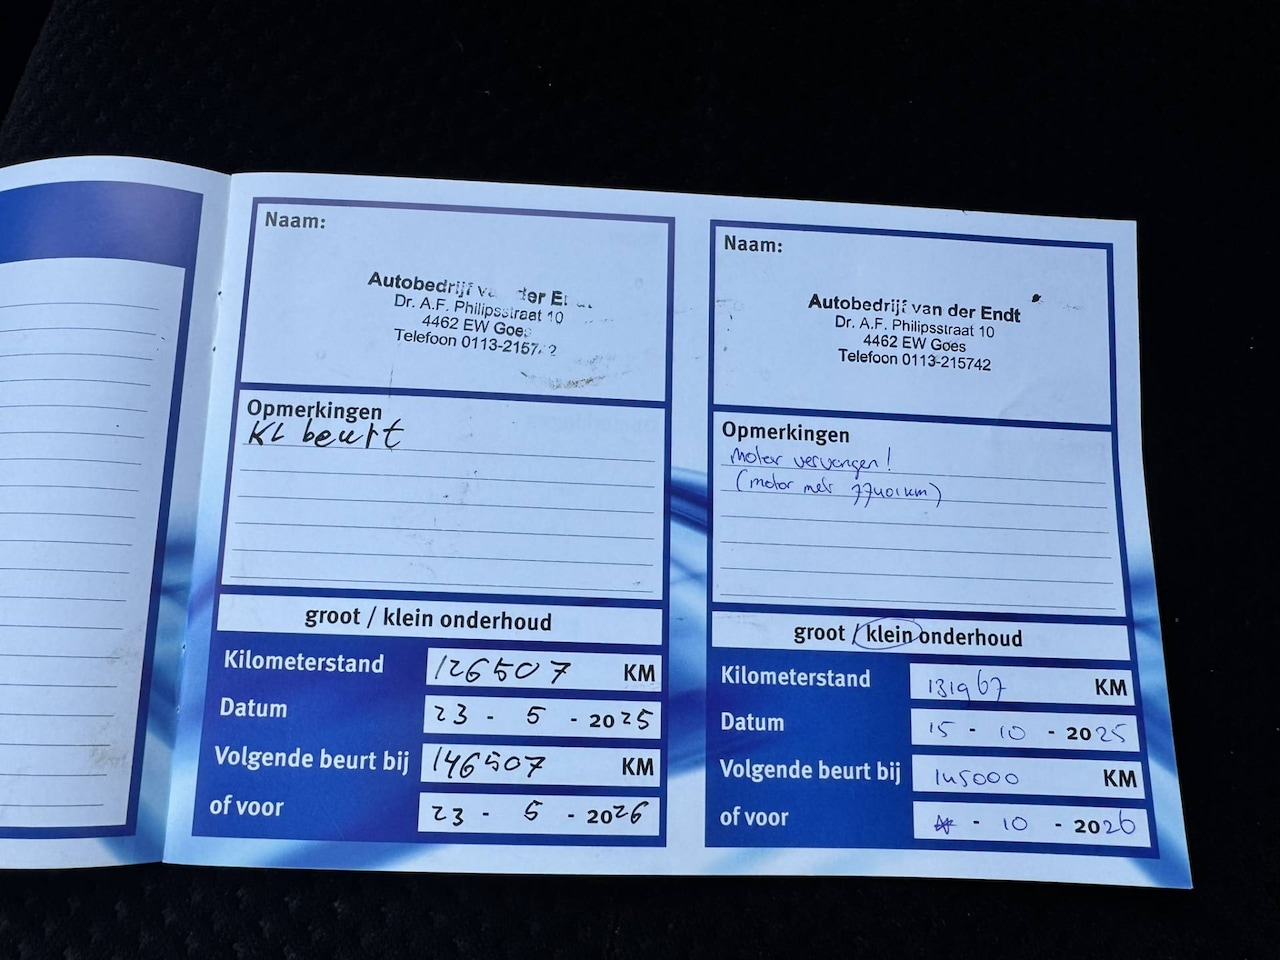 Naam:
Autobedrijf van der Endt
Dr. A.F. Philipsstraat 10
4462 EW Goes
Telefoon 0113-215742
Opmerkingen
KL beurt
groot / klein onderhoud
Kilometerstand 126507 KM
Datum 23 - 5 - 2025
Volgende beurt bij 146507 KM
of voor 23 - 5 - 2026
Naam:
Autobedrijf van der Endt
Dr. A.F. Philipsstraat 10
4462 EW Goes
Telefoon 0113-215742
Opmerkingen
Motor vervangen!
(motor met 77401km)
groot / klein onderhoud
Kilometerstand 131967 KM
Datum 15 - 10 - 2025
Volgende beurt bij 145000 KM
of voor - 10 - 2026